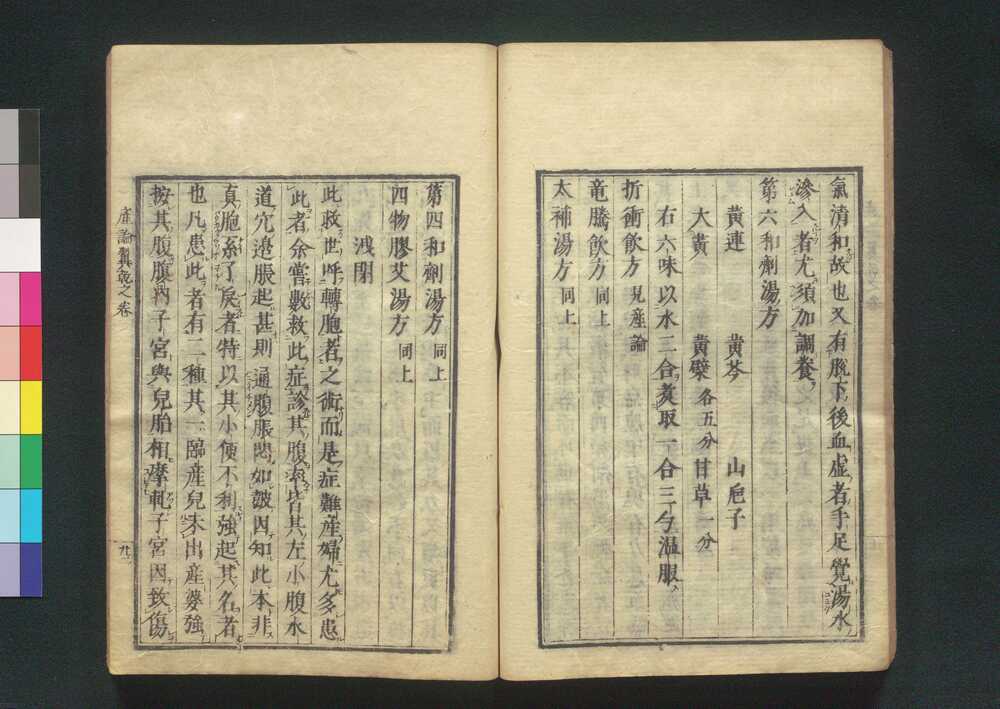 氣清和故也又有脫下後血虛者手足覺湯水
滲入者尤須加調養
第六和劑湯方
黃連　黃芩　山巵子
大黃　黃檗各五分甘草一分
右六味以水二合煑取一合三勺温服
折衝飲方見産論
竜騰飲方同上
太補湯方同上
第四和劑湯方同上
四物膠艾湯方同上
洩閉
此救世呼轉胞者之術而是症難産婦尤多患
此者余嘗數救此症診其腹率皆其左小腹水
道穴邊脹起甚則通腹脹悶如皷因知此本非
真胞系了戾者特以其小便不利強起其名者
也凡患此者有二種其一臨産兒未出産婆強
按其腹腹內子宮與兒胎相摩軋子宮因致傷
産論翼乾之卷